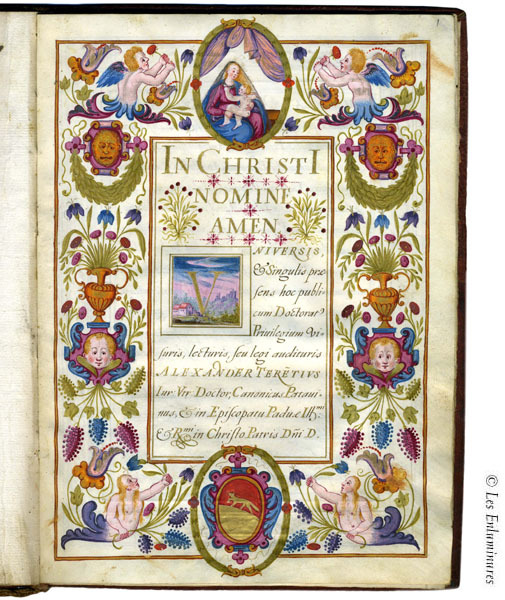 1
IN CHRISTI
NOMINE
AMEN.
VNIVERSIS,
& Singulis præ
sens hoc publi
cum Doctorat⁹
Privilegium vi-
suris, lecturis, seu legi audituris
ALEXANDER TERĒTIVS
Iur. Vtr. Doctor, Canonicus Patavi-
nus, & in Episcopatu Paduæ Ill.mi
& R.mi in Christo Patris Dñi D.
© Les Enluminures